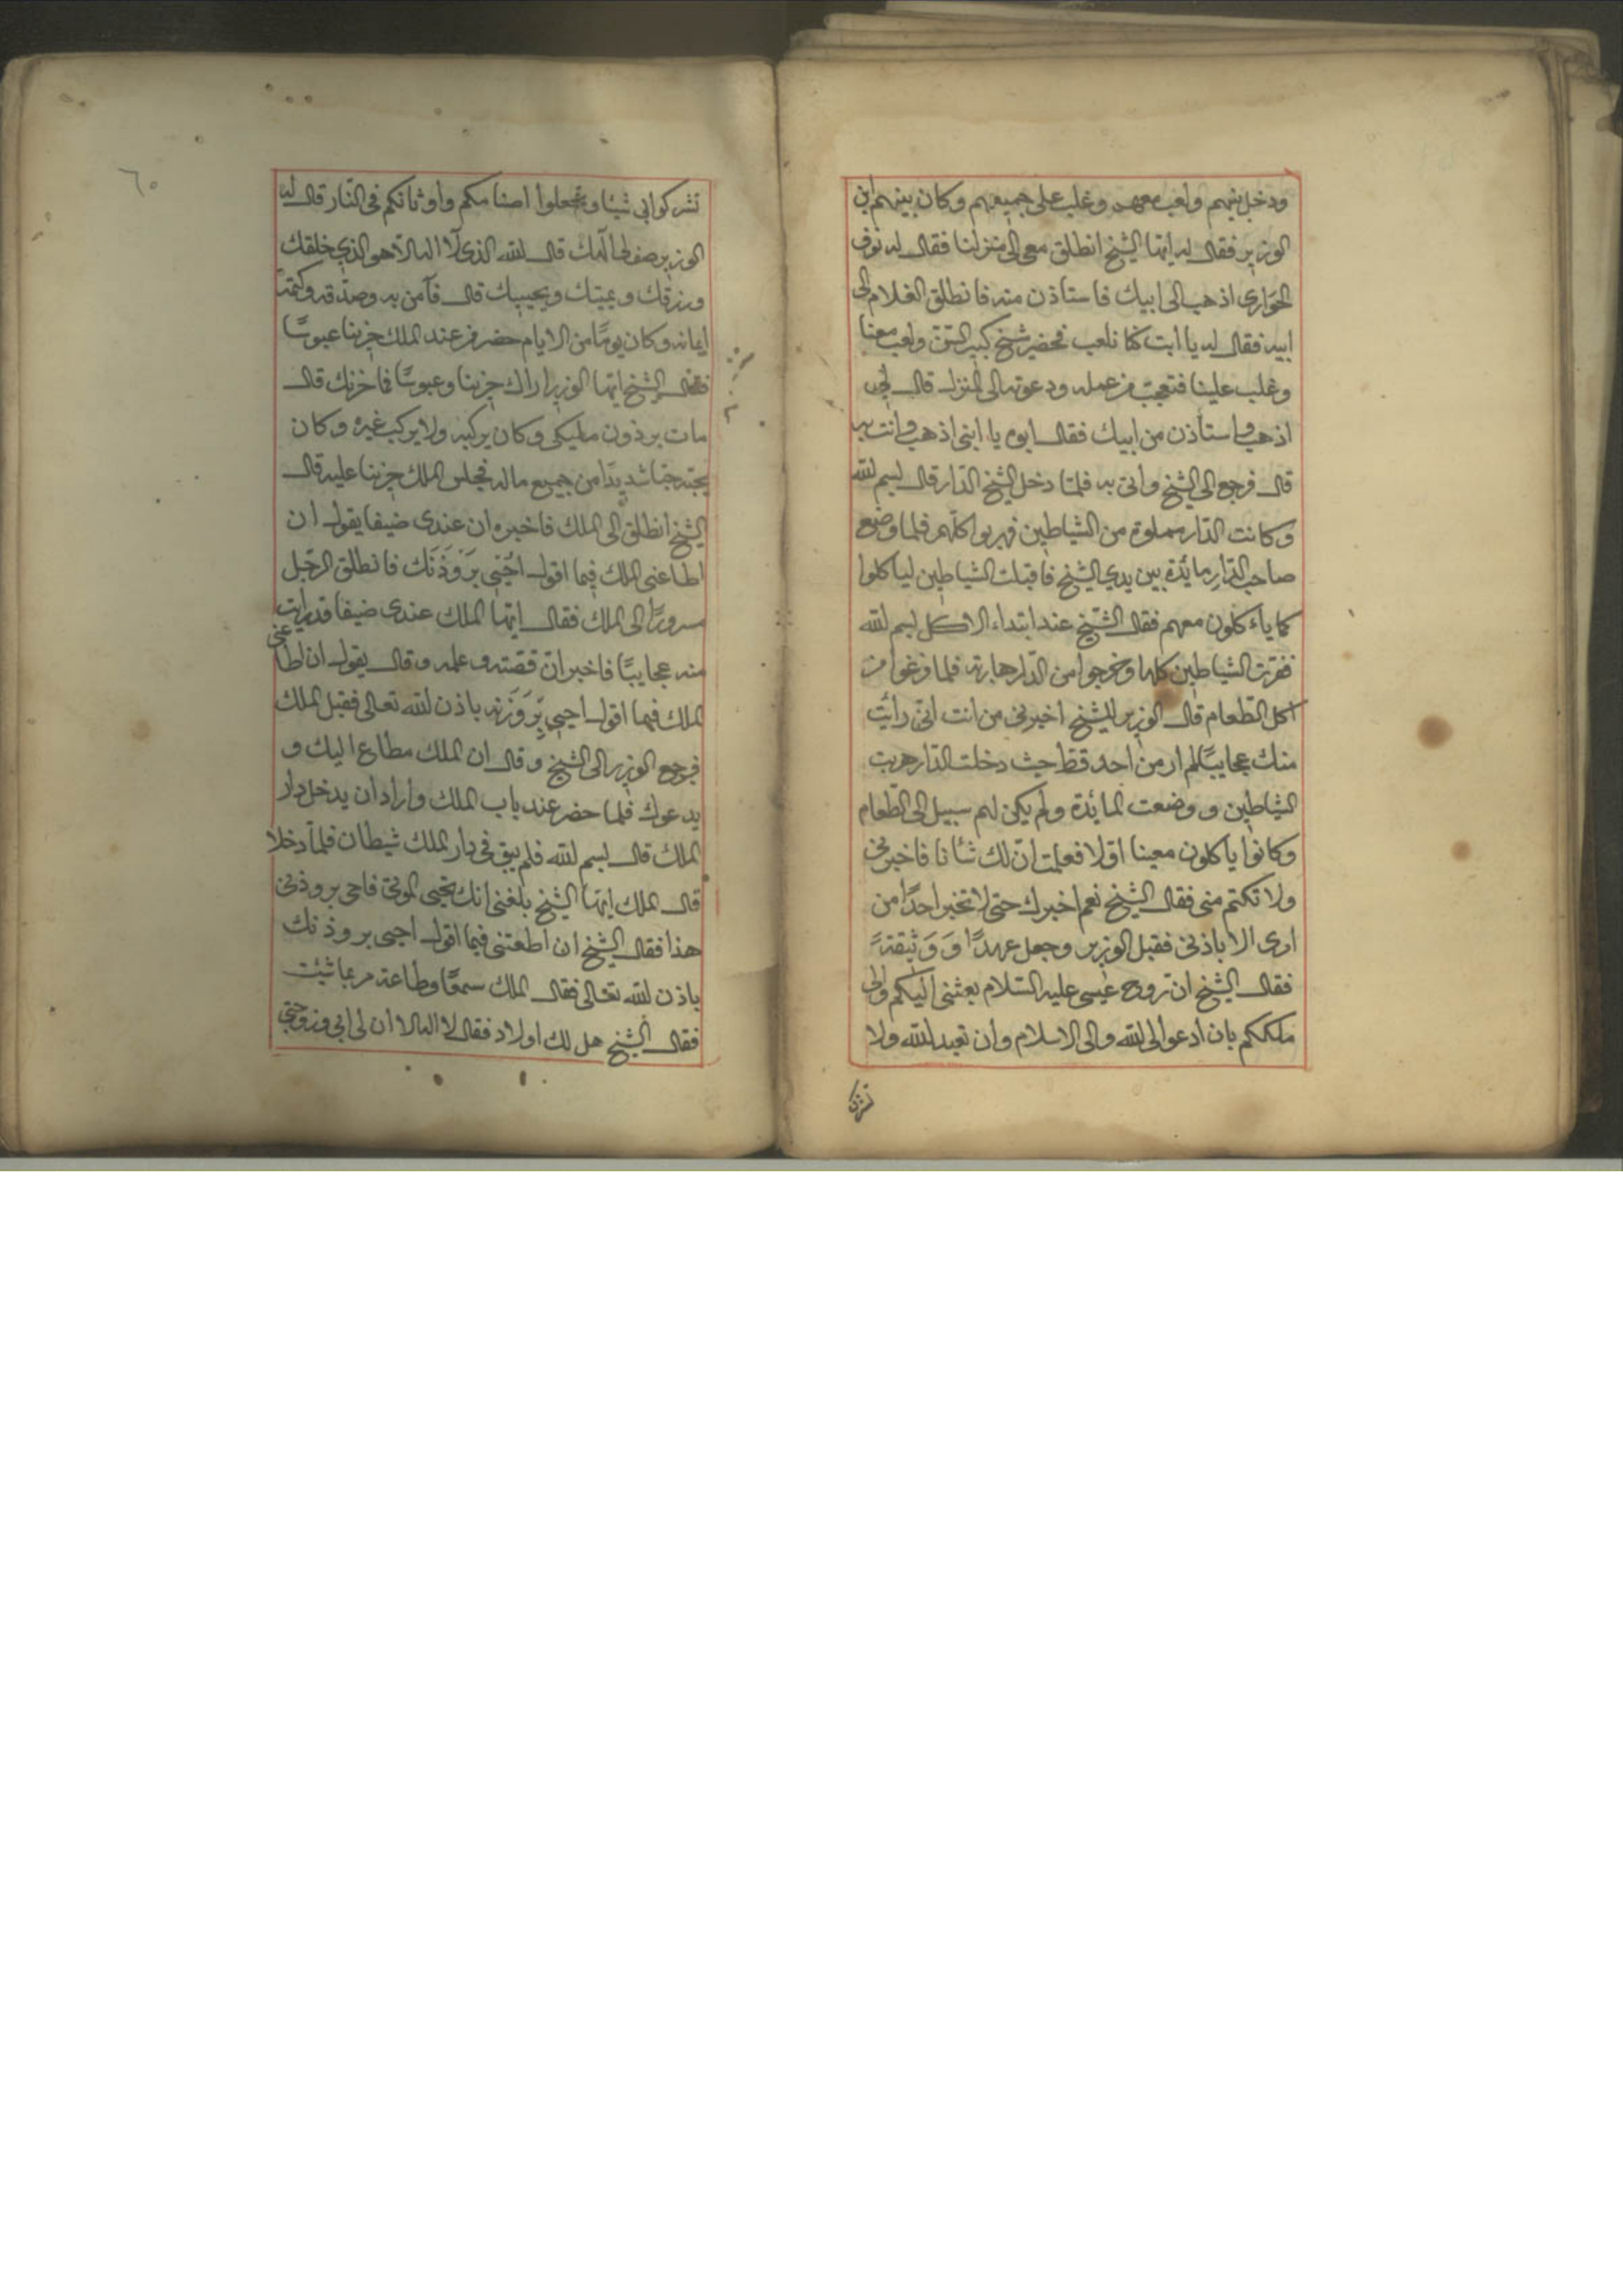 ودخل بينهم ولعب معهم وغلب على جميعهم وكان بينهم ابن
الوزير فقال له ايها الشيخ انطلق معى الى منزلنا فقال له نوف
الحوارى اذهب الى ابيك فاستأذن منه فانطلق الغلام الى
ابيه فقال له يا ابت كنا نلعب فحضر شيخ كبير السن ولعب معنا
وغلب علينا فتعجب من عمله ودعوته الى المنزل قال لى
اذهب واستأذن من ابيك فقال ابوه يا ابنى اذهب وانت به
قال فرجع الى الشيخ واتى به فلما دخل الشيخ الدار قال بسم الله
وكانت الدار مملوة من الشياطين فهربوا كلهم فلما وضع
صاحب الدار مائدة بين يدي الشيخ فاقبلت الشياطين لياكلوا
كما ياءكلون معهم فقال الشيخ عند ابتداء الاكل بسم الله
ففرت الشياطين كلها وخرجوا من الدار هاربة فلما فرغوا من
اكل الطعام قال الوزير للشيخ اخبرنى من انت انى رأيت
منك عجايبًا لم ار من احد قط حيث دخلت الدار هربت
الشياطين و وضعت المائدة ولم يكن لهم سبيل الى الطعام
وكانوا ياكلون معينا اولا فعلمت ان لك شأنا فاخبرنى
ولا تكتم منى فقال الشيخ نعم اخبرك حتى لا تخبر احدًا من
امرى الا باذنى فقبل الوزير وجعل عهدًا وَ وَثيقةً
فقال الشيخ ان روح عيسى عليه السلام بعثنى اليكم والى
ملككم بان ادعو الى الله والى الاسلام وان تعبد الله ولا
تشرك
تشركوا بى شيئا وتجعلوا اصنامكم واوثانكم فى النار قال له
الوزير صف لى الهك قال الله الذى لا اله الا هو الذي خلقك
ورزقك ويميتك ويحييك قال فآمن به وصدقه وكتم
ايمانه وكان يومًا من الايام حضر من عند الملك حزينا عبوسًا
فقال الشيخ ايها الوزير اراك حزينا وعبوسًا فما حزنك قال
مات برذون مليكى وكان يركبه ولا يركب غيره وكان
يحبه حبا شديدًا من جميع ماله فجلس الملك حزينا عليه قال
الشيخ انطلق الى الملك فاخبره ان عندى ضيفا يقول ان
اطاعنى الملك فيما اقول احيى بَرْوَذَنَك فانطلق الرجل
مسرورًا الى الملك فقال ايها الملك عندى ضيفا قد رايت
منه عجايبًا فاخبر ان قصته وعلمه وقال يقول ان اطاعنى
الملك فيما اقول احيى بَرْوَزَنه باذن الله تعالى فقبل الملك
فرجع الوزير الى الشيخ وقال ان الملك مطاع اليك و
يدعوك فلما حضر عند باب الملك واراد ان يدخل دار
الملك قال بسم الله فلم يبق فى دار الملك شيطان فلما دخلا
قال الملك ايها الشيخ بلغنى انك تحيى الموتى فاحى بروذنى
هذا فقال الشيخ ان اطعتنى فيما اقول احيى بروذنك
باذن الله تعالى فقال الملك سمعًا وطاعة مر بما شئت
فقال الشيخ هل لك اولاد فقال لا اله الا ان لى ابى وزوجتى
٦٥